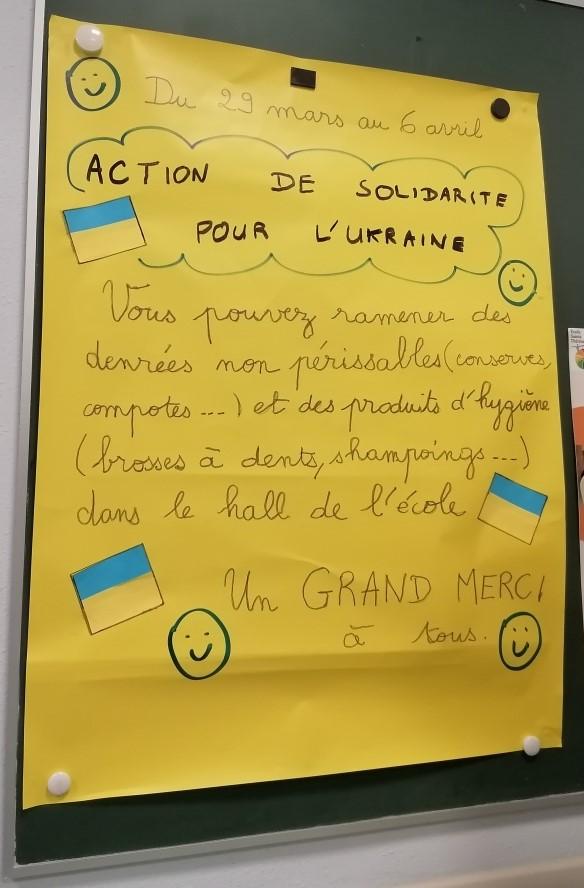 Du 29 mars au 6 avril
ACTION DE SOLIDARITE
POUR L'UKRAINE
Vous pouvez ramener des
denrées non périssables (conserves,
compotes ...) et des produits d'hygiène
(brosses à dents, shampoings ...)
dans le hall de l'école
Un GRAND MERCI
à tous.